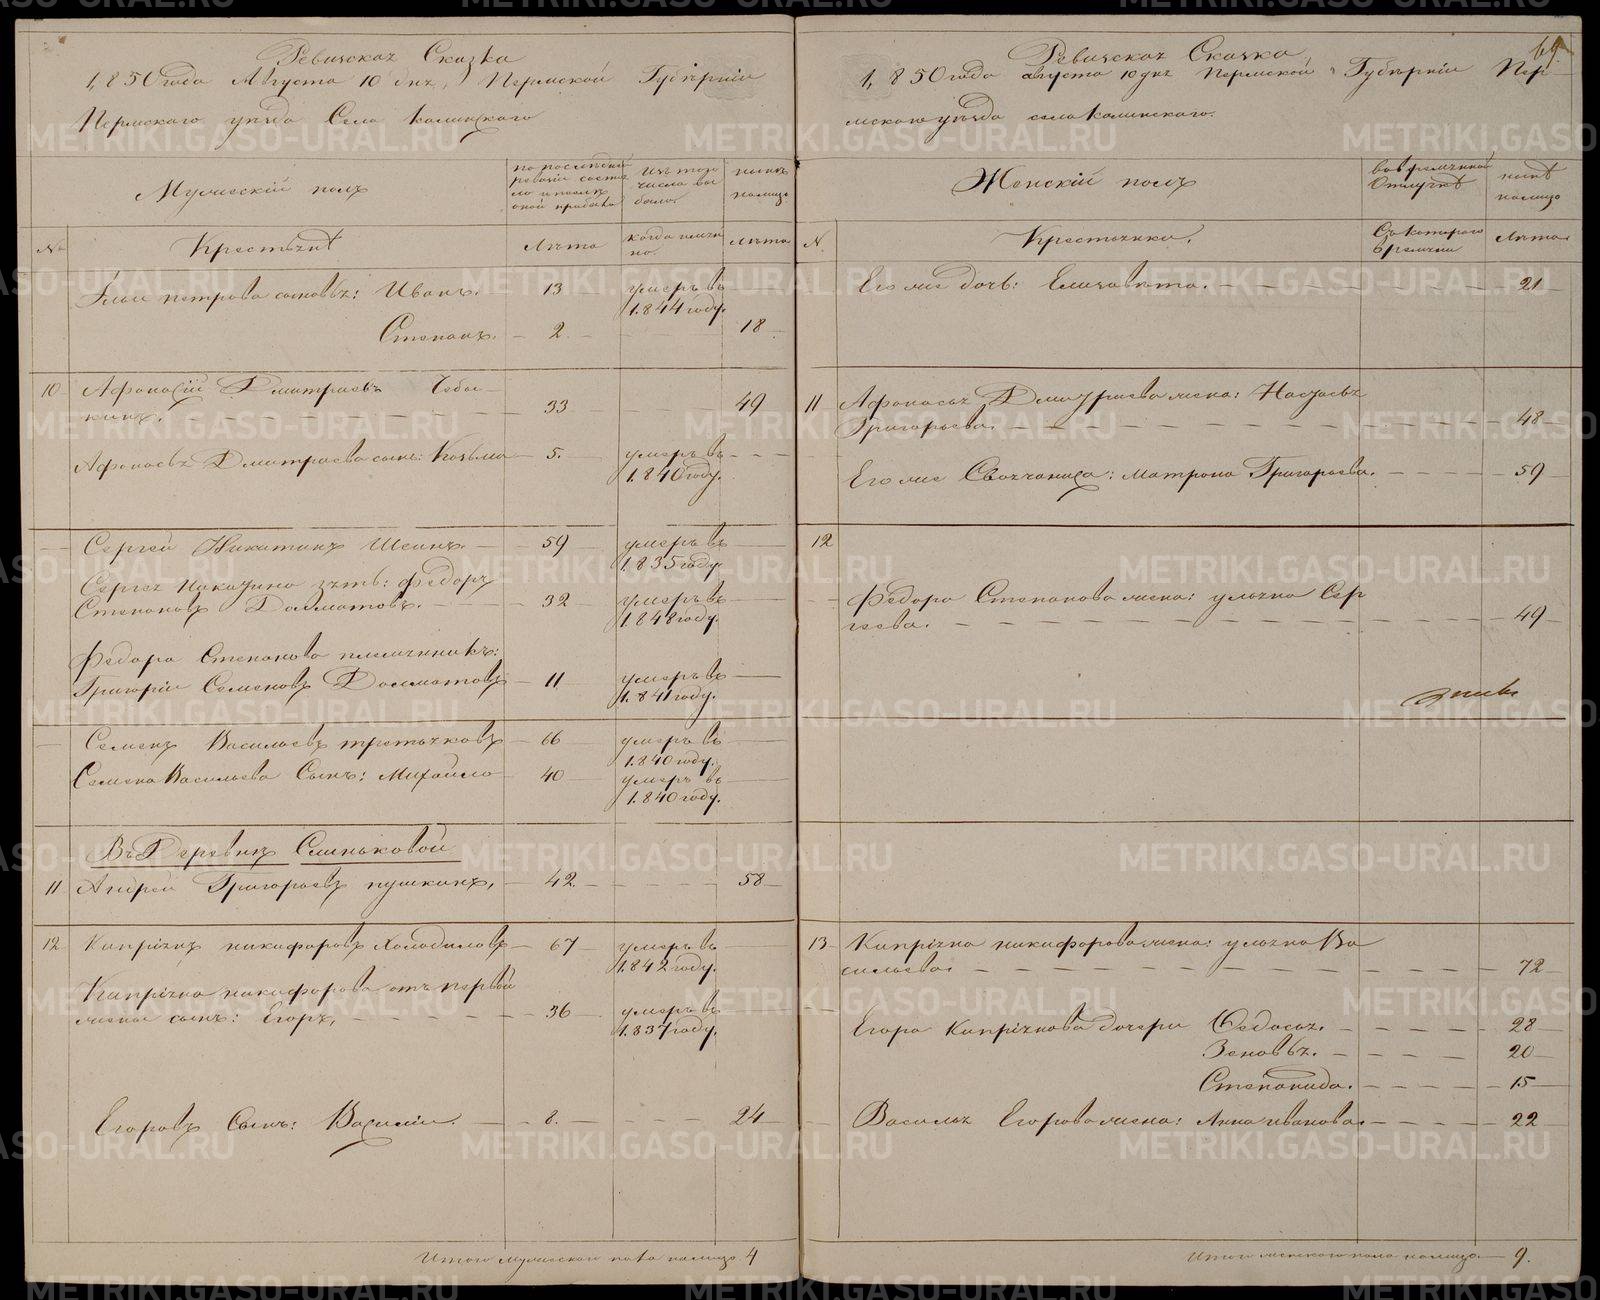 Ревизская Сказка
1,850 года Августа 10 дня, Пермской Губернiи
Пермскаго уезда Села Калинскаго
Мужескiй полъ
по последней ревизiи состояло и после оной прибыло
изъ того числа выбыло
ныне налицо
№
Крестьяне
Лета
когда именно
Лета
Ильи петрова сыновья: Иванъ.
13
умеръ въ 1.844 году.
Степанъ.
2
18
10
Афонасiй Дмитрiевъ Чеба
кинъ.
33
49
Афонасья Дмитрiева сынъ: Козьма
5.
умеръ въ 1.840 году.
Сергей Никитинъ Шеинъ.
59
умеръ въ 1.835 году.
Сергея Никитина зять: Федоръ
Степановъ Долматовъ.
32
умеръ въ 1.848 году.
Федора Степанова племянникъ:
Григорiи Семеновъ Долматовъ
11
умеръ въ 1.841 году.
Семенъ Васильевъ третьяковъ
66
умеръ въ 1.840 году.
Семена Васильева Сынъ: Михайло
40
умеръ въ 1.840 году.
Въ Деревне
11
Андрей Григорьевъ пушкинъ,
42.
58
12
Кипрiянъ никифоровъ Холодиловъ
67
умеръ въ 1.842 году.
Кипрiяна никифорова отъ первой
жены сынъ: Егоръ,
36
умеръ въ 1.837 году.
Егоровъ Сынъ: Василiи.
8.
24
Итого мужескаго пола налицо 4
69
Ревизская Сказка
1,850 года августа 10 дня Пермской Губернiи Пер
мскаго уезда села Калинскаго.
Женскiй полъ
во временной Отлучке
ныне налицо
№.
Крестьянки.
Съ котораго времени
Лета
Его же дочь: Елизавета.
21
11
Афонасья Дмитрiева жена: Настасья
Григорьева.
48
Его же Своячаница: матрона Григорьева.
59
12
Федора Степанова жена: ульяна Сер
геева.
49
13
Кипрiяна никифорова жена: ульяна Ва
сильева.
72
Егора Кипрiянова дочери Федосья.
28
Зеновья.
20
Степанида.
15
Василья Егорова жена: Анна иванова.
22
Итого женскаго пола налицо 9.
METRIKI.GASO-URAL.RU